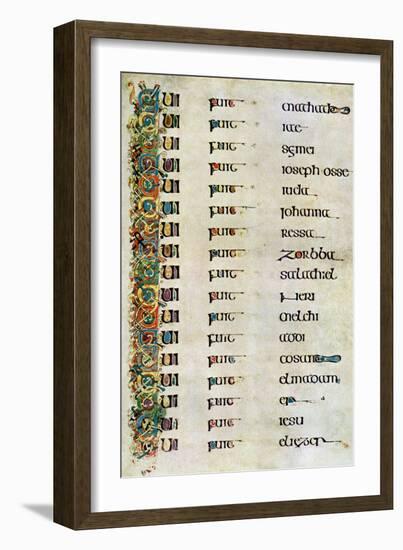 qui fuit mathathie
qui fuit
qui fuit semei
qui fuit ioseph osse
qui fuit iuda
qui fuit iohanna
qui fuit ressa
qui fuit zorbba
qui fuit salathiel
qui fuit neri
qui fuit melchi
qui fuit addi
qui fuit cosam
qui fuit elmadam
qui fuit er
qui fuit iesu
qui fuit eliezer